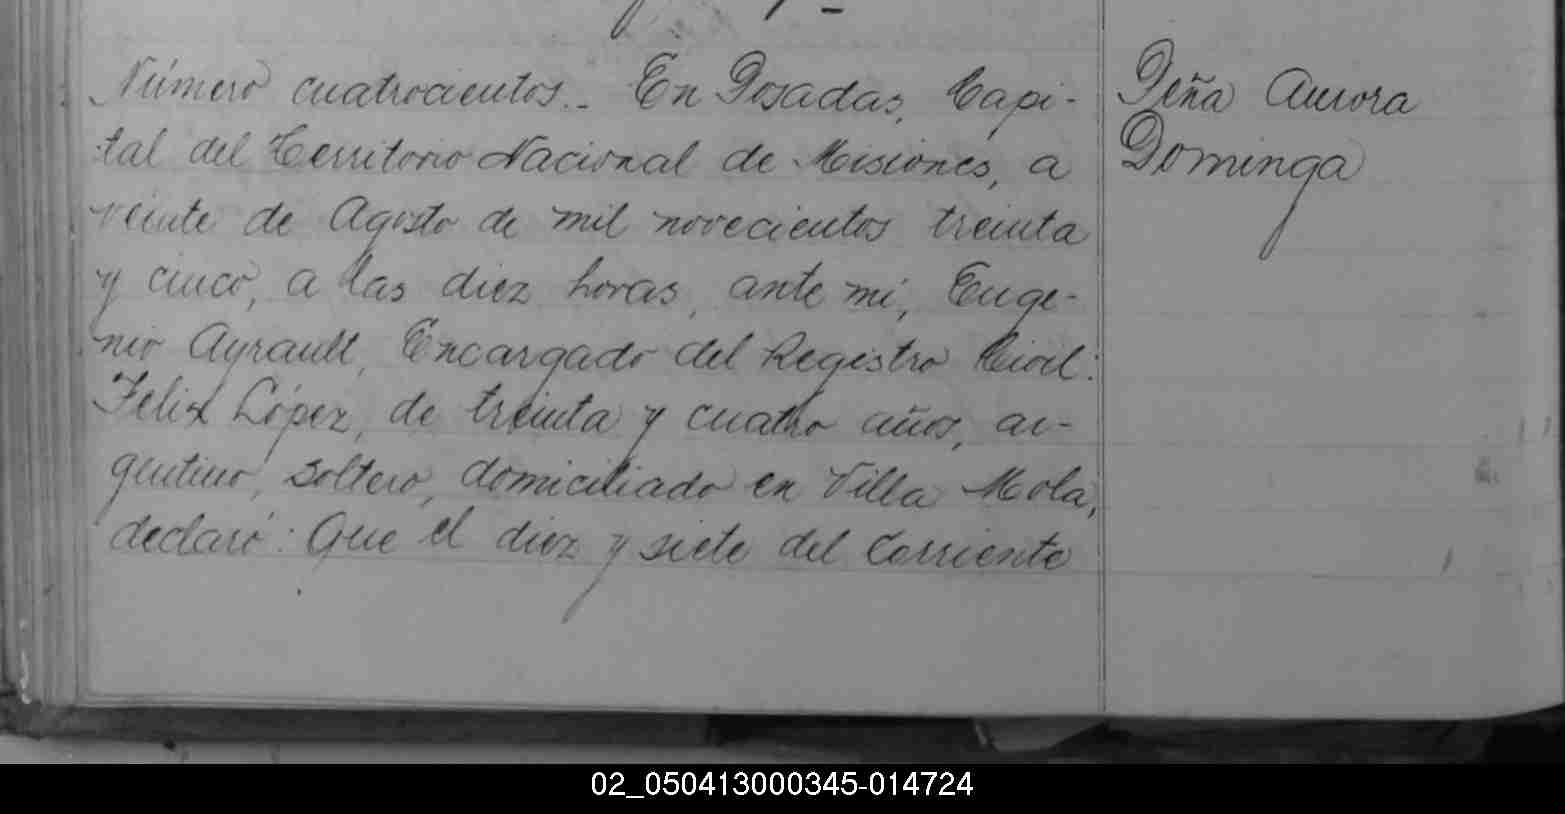 Número cuatrocientos.. En Posadas, Capi-
tal del Territorio Nacional de Misiones, a
veinte de Agosto de mil novecientos treinta
y cinco, a las diez horas, ante mí, Euge-
nio Ayrault, Encargado del Registro Civil:
Felix López, de treinta y cuatro años, ar-
gentino, soltero, domiciliado en Villa Mola,
declaró: Que el diez y siete del corriente
Peña Aurora
Dominga
02_050413000345-014724